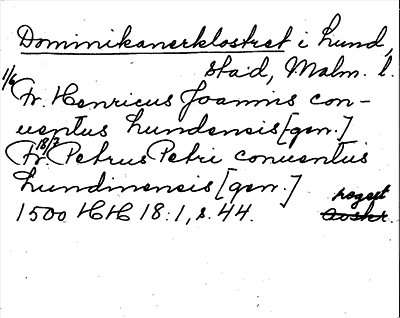 Dominikanerklostret i Lund,
stad, Malm. l.
1/6
Fr. Henricus Joannis con-
uentus Lundensis [gen.]
18/7
Fr. Petrus Petri conuentus
Lundinensis [gen.]
1500 HH 18:1, s. 44.
Avskr.